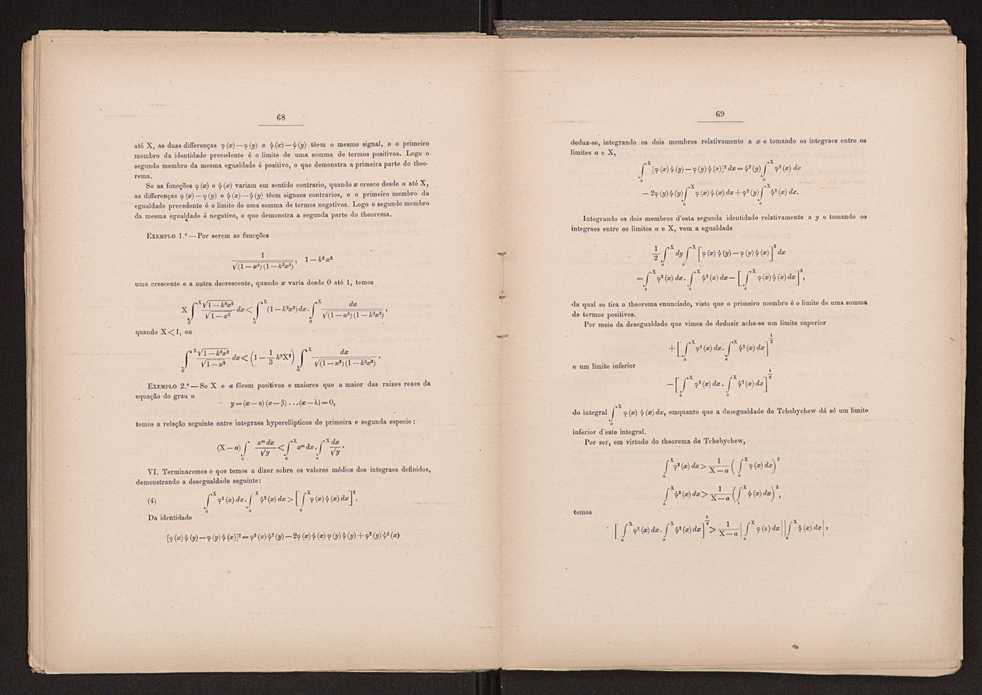 68
até X, as duas differenças φ(x)—φ(y) e ψ(x)—ψ(y) têem o mesmo signal, e o primeiro
membro da identidade precedente é o limite de uma somma de termos positivos. Logo o
segundo membro da mesma egualdade é positivo, o que demonstra a primeira parte do theo-
rema.
Se as funcções φ(x) e ψ(x) variam em sentido contrario, quando x cresce desde a até X,
as differenças φ(x)—φ(y) e ψ(x)—ψ(y) têem signaes contrarios, e o primeiro membro da
egualdade precedente é o limite de uma somma de termos negativos. Logo o segundo membro
da mesma egualdade é negativo, o que demonstra a segunda parte do theorema.
EXEMPLO 1.º—Por serem as funcções
1/√((1—x²)(1—k²x²)), 1—k²x²
uma crescente e a outra decrescente, quando x varia desde 0 até 1, temos
X∫₀^X √(1—k²x²)/√(1—x²) dx < ∫₀^X (1—k²x²)dx.∫₀^X dx/√((1—x²)(1—k²x²)),
quando X<1, ou
∫₀^X √(1—k²x²)/√(1—x²) dx < (1—1/3 k²X²)∫₀^X dx/√((1—x²)(1—k²x²)).
EXEMPLO 2.º—Se X e a fôrem positivos e maiores que a maior das raizes reaes da
equação do grau n
y=(x—α)(x—β)...(x—λ)=0,
temos a relação seguinte entre integraes hyperellipticos de primeira e segunda especie:
(X—a)∫ₐ^X xᵐdx/√y < ∫ₐ^X xᵐdx.∫ₐ^X dx/√y.
VI. Terminaremos o que temos a dizer sobre os valores médios dos integraes definidos,
demonstrando a desegualdade seguinte:
(4) ∫ₐ^X φ²(x)dx.∫ₐ^X ψ²(x)dx > [∫ₐ^X φ(x)ψ(x)dx]².
Da identidade
[φ(x)ψ(y)—φ(y)ψ(x)]²=φ²(x)ψ²(y)—2φ(x)ψ(x)φ(y)ψ(y)+φ²(y)ψ²(x)
69
deduz-se, integrando os dois membros relativamente a x e tomando os integraes entre os
limites a e X,
∫ₐ^X [φ(x)ψ(y)—φ(y)ψ(x)]²dx=ψ²(y)∫ₐ^X φ²(x)dx
—2φ(y)ψ(y)∫ₐ^X φ(x)ψ(x)dx+φ²(y)∫ₐ^X ψ²(x)dx.
Integrando os dois membros d'esta segunda identidade relativamente a y e tomando os
integraes entre os limites a e X, vem a egualdade
1/2∫ₐ^X dy∫ₐ^X [φ(x)ψ(y)—φ(y)ψ(x)]²dx
=∫ₐ^X φ²(x)dx.∫ₐ^X ψ²(x)dx—[∫ₐ^X φ(x)ψ(x)dx]²,
da qual se tira o theorema enunciado, visto que o primeiro membro é o limite de uma somma
de termos positivos.
Por meio da desegualdade que vimos de deduzir acha-se um limite superior
+[∫ₐ^X φ²(x)dx.∫ₐ^X ψ²(x)dx]^(1/2)
e um limite inferior
—[∫ₐ^X φ²(x)dx.∫ₐ^X ψ²(x)dx]^(1/2)
do integral ∫ₐ^X φ(x)ψ(x)dx, emquanto que a desegualdade de Tchebychew dá só um limite
inferior d'este integral.
Por ser, em virtude do theorema de Tchebychew,
∫ₐ^X φ²(x)dx > 1/(X—a)(∫ₐ^X φ(x)dx)²
∫ₐ^X ψ²(x)dx > 1/(X—a)(∫ₐ^X ψ(x)dx)²,
temos
[∫ₐ^X φ²(x)dx.∫ₐ^X ψ²(x)dx]^(1/2) > 1/(X—a)|∫ₐ^X φ(x)dx||∫ₐ^X ψ(x)dx|,